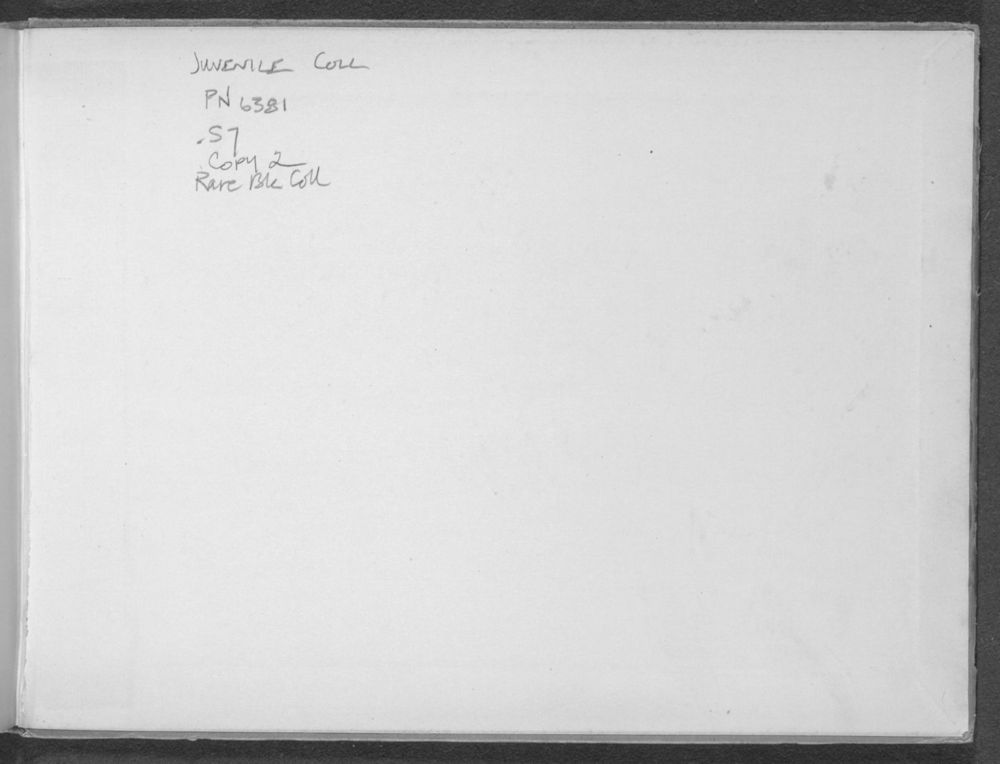 JUVENILE COLL
PN 6381
.S7
Copy 2
Rare Bk Coll